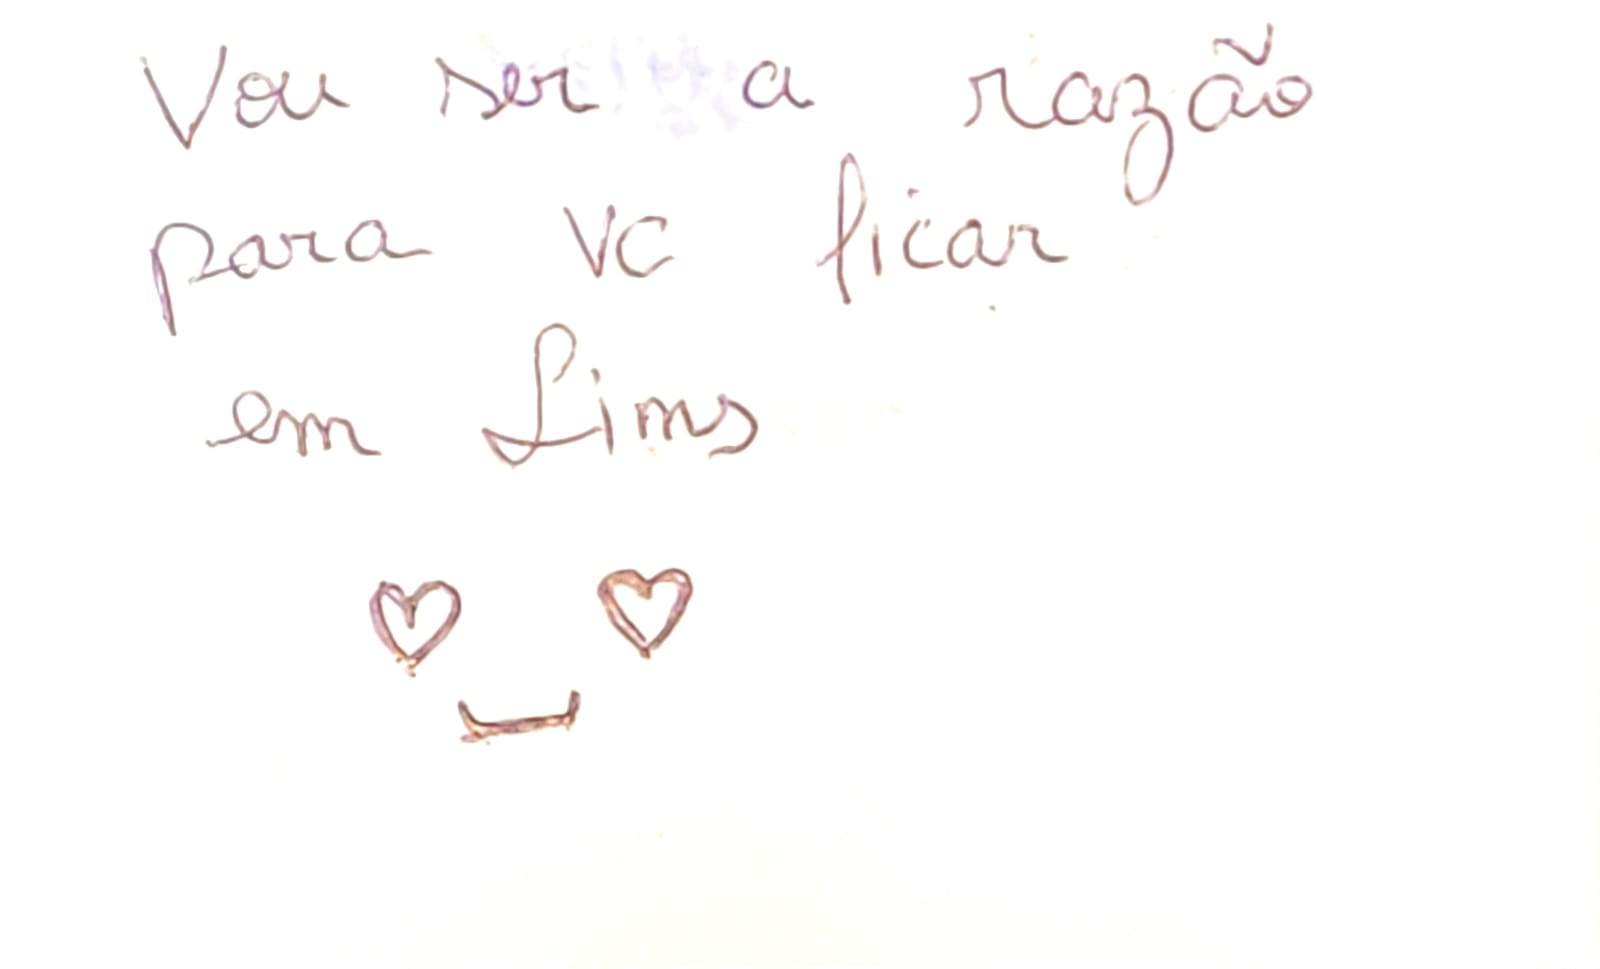 Vou ser a razão
para vc ficar
em Lims